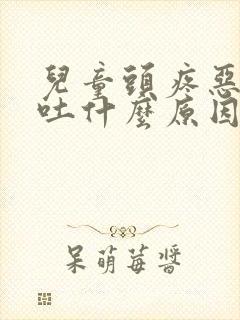 兒童頭疼惡
吐什麼原因
呆萌莓醬